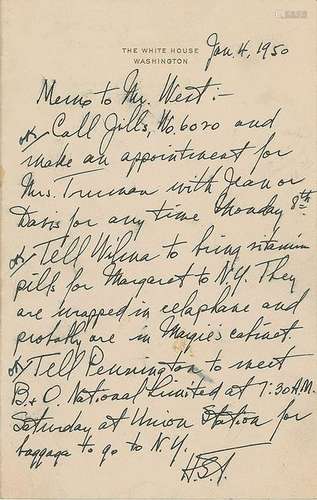 THE WHITE HOUSE
WASHINGTON
Jan. 4, 1950
Memo to Mr. West:-
Call Jills, Wo. 6020 and
make an appointment for
Mrs. Truman with Jean or
Davis for any time Monday 8th
Tell Wilma to bring vitamin
pills for Margaret to N.Y. They
are wrapped in celaphane and
probally are in Margie's cabinet.
Tell Pennington to meet
B.+O. National Limited at 7:30 A.M.
Saturday at Union Station for
baggage to go to N.Y.
H.S.T.